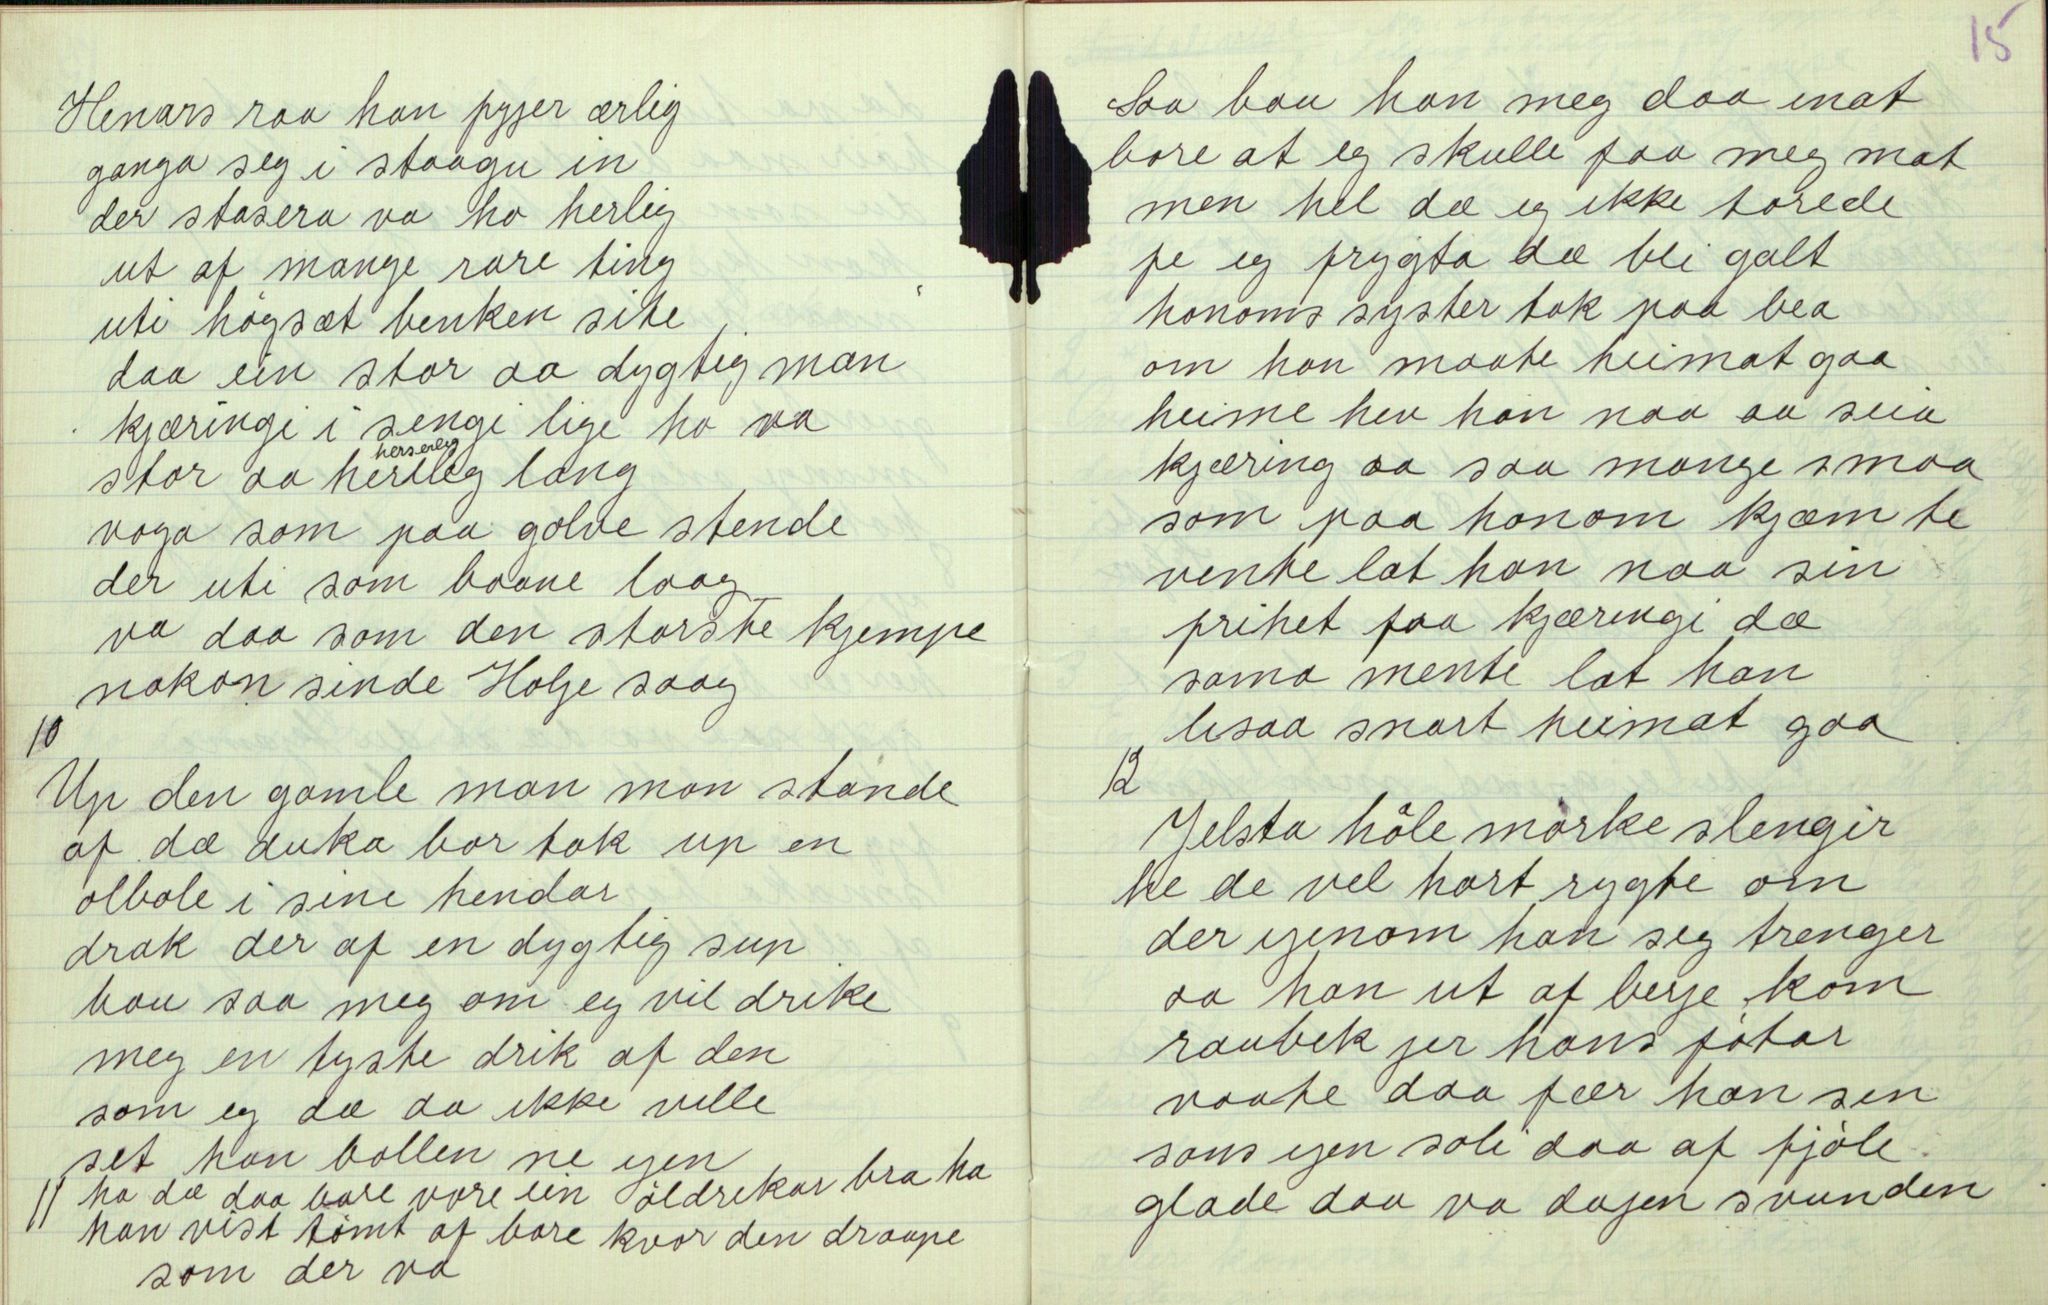 Henars raa han pyjer ærlig
ganga seg i staagu in
der stasera va ho herlig
ut af mange rare ting
uti högsæt benken site
daa ein stor aa dygtig man
kjæringi i sengi lige ho va
herserlig
stor aa herlig lang
voga som paa golve stende
der uti som baane laag
va daa som den störste kjempe
nokon sinde Holje saag
10
Up den gamle man mon stande
af dæ duka bor tok up en
ölbole i sine hendar
drak der af en dygtig sup
bau saa meg om eg vil drike
meg en tyste drik af den
som eg dæ aa ikke ville
set han bollen ne igen
11 ha dæ daa bare vore ein öldrikar bra ha
han vist tömt af bare kvor den draape
som der va
15
Saa bau han meg daa inat
bare at eg skulle faa meg mat
men hel dæ eg ikke torede
fe eg frygta dæ bli galt
honoms syster tok paa bea
om han maate heimat gaa
heime hev han naa aa seia
kjæring aa saa mange smaa
som paa honom kjæm te
vente lat han naa sin
frihet faa kjæringi dæ
sama mente lat han
lisaa snart heimat gaa
12
Jelsta höle mörke slengir
he de vel hört rygte om
der igenom han seg trenger
aa han ut af berje kom
raubek jer hans fötar
vaate daa fær han sen
sans igen soli daa af fjöle
glade daa va dagen svunden